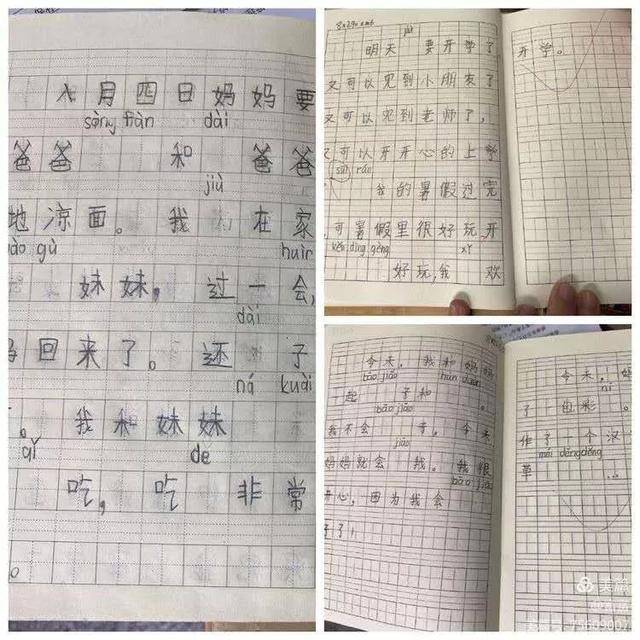 八月四日妈妈要
sòng fiàn dài
爸爸 和 爸爸
jiù
地凉面。我 在家
gù huìr
妹妹。过一会,
dài
回来了。还 子
ná kuài
。我和妹妹
de
吃,吃 非常
明天 要开学了
又可以见到小朋友了
又可以见到老师了,
又可以开开心的上学
suī ráo
我的暑假过完
,可暑假里很好玩开
kěn dìng gèng xǐ
好玩,我 欢
开学。
今天,我和妈妈
bāo jiǎo hún dùn
一起 子和 。
bāo jiǎo
我不会 。今天,
jiāo
妈妈就会 我。我很
bāo jiǎo
开心,因为我会
子了!
今天, 妈
ní
了 自彩。
作了一个汉
草
美篇